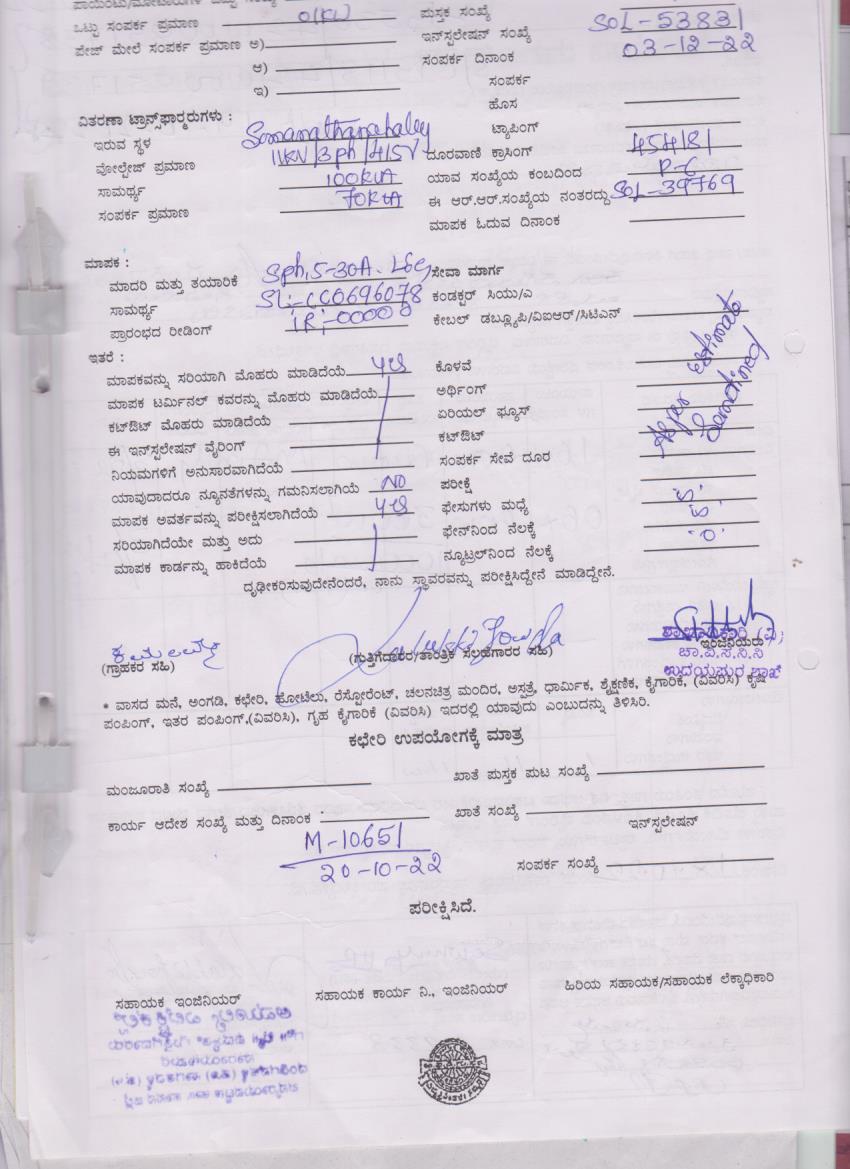 ಒಟ್ಟು ಸಂಪರ್ಕ ಪ್ರಮಾಣ 01KW
ಪೇಜ್ ಮೇಲೆ ಸಂಪರ್ಕ ಪ್ರಮಾಣ ಅ)
ಆ)
ಇ)
ಪುಸ್ತಕ ಸಂಖ್ಯೆ
ಇನ್‌ಸ್ಟಲೇಷನ್ ಸಂಖ್ಯೆ SOL-53831
ಸಂಪರ್ಕ ದಿನಾಂಕ 03-12-22
ಸಂಪರ್ಕ
ಹೊಸ
ಟ್ಯಾಪಿಂಗ್
ವಿತರಣಾ ಟ್ರಾನ್ಸ್‌ಫಾರ್ಮರುಗಳು :
ಇರುವ ಸ್ಥಳ Somanathanahalley
ವೋಲ್ಟೇಜ್ ಪ್ರಮಾಣ 11KV/3ph/415V
ಸಾಮರ್ಥ್ಯ 100KVA
ಸಂಪರ್ಕ ಪ್ರಮಾಣ 70KVA
ದೂರವಾಣಿ ಕ್ರಾಸಿಂಗ್ 454181
ಯಾವ ಸಂಖ್ಯೆಯ ಕಂಬದಿಂದ P-C
ಈ ಆರ್.ಆರ್.ಸಂಖ್ಯೆಯ ನಂತರದ್ದು SOL-39769
ಮಾಪಕ ಓದುವ ದಿನಾಂಕ
ಮಾಪಕ :
ಮಾದರಿ ಮತ್ತು ತಯಾರಿಕೆ Sph,5-30A. L&G
ಸಾಮರ್ಥ್ಯ Sl:-CC0696078
ಪ್ರಾರಂಭದ ರೀಡಿಂಗ್ IR:-00000
ಸೇವಾ ಮಾರ್ಗ
ಕಂಡಕ್ಟರ್ ಸಿಯು/ಎ
ಕೇಬಲ್ ಡಬ್ಲ್ಯೂಪಿ/ವಿಐಆರ್/ಸಿಟಿಎನ್
ಇತರೆ :
ಮಾಪಕವನ್ನು ಸರಿಯಾಗಿ ಮೊಹರು ಮಾಡಿದೆಯೆ yes
ಮಾಪಕ ಟರ್ಮಿನಲ್ ಕವರನ್ನು ಮೊಹರು ಮಾಡಿದೆಯೆ
ಕಟ್‌ಔಟ್ ಮೊಹರು ಮಾಡಿದೆಯೆ
ಈ ಇನ್‌ಸ್ಟಲೇಷನ್ ವೈರಿಂಗ್
ನಿಯಮಗಳಿಗೆ ಅನುಸಾರವಾಗಿದೆಯೆ
ಯಾವುದಾದರೂ ನ್ಯೂನತೆಗಳನ್ನು ಗಮನಿಸಲಾಗಿಯೆ NO
ಮಾಪಕ ಅವರ್ತವನ್ನು ಪರೀಕ್ಷಿಸಲಾಗಿದೆಯೆ yes
ಸರಿಯಾಗಿದೆಯೇ ಮತ್ತು ಅದು
ಮಾಪಕ ಕಾರ್ಡನ್ನು ಹಾಕಿದೆಯೆ
ಕೊಳವೆ
ಅರ್ಥಿಂಗ್
ಏರಿಯಲ್ ಫ್ಯೂಸ್
ಕಟ್‌ಔಟ್
ಸಂಪರ್ಕ ಸೇವೆ ದೂರ
ಪರೀಕ್ಷೆ
ಫೇಸುಗಳು ಮಧ್ಯೆ
ಫೇಸ್‌ನಿಂದ ನೆಲಕ್ಕೆ
ನ್ಯೂಟ್ರಲ್‌ನಿಂದ ನೆಲಕ್ಕೆ
As per Estimate
Sanctioned
ದೃಢೀಕರಿಸುವುದೇನೆಂದರೆ, ನಾನು ಸ್ಥಾವರವನ್ನು ಪರೀಕ್ಷಿಸಿದ್ದೇನೆ ಮಾಡಿದ್ದೇನೆ.
ಕಮಲಮ್ಮ
(ಗ್ರಾಹಕರ ಸಹಿ)
(ಗುತ್ತಿಗೆದಾರರ/ತಾಂತ್ರಿಕ ಸಲಹೆಗಾರರ ಸಹಿ)
ಇಂಜಿನಿಯರು
ಶಾಖಾಧಿಕಾರಿ (ವಿ)
ಚಾ.ವಿ.ಸ.ನಿ.ನಿ
ಉದಯಪುರ ಶಾಖೆ
* ವಾಸದ ಮನೆ, ಅಂಗಡಿ, ಕಛೇರಿ, ಹೋಟೆಲು, ರೆಸ್ಟೋರೆಂಟ್, ಚಲನಚಿತ್ರ ಮಂದಿರ, ಅಸ್ಪತ್ರೆ, ಧಾರ್ಮಿಕ, ಶೈಕ್ಷಣಿಕ, ಕೈಗಾರಿಕೆ, (ವಿವರಿಸಿ) ಕೃಷಿ
ಪಂಪಿಂಗ್, ಇತರ ಪಂಪಿಂಗ್,(ವಿವರಿಸಿ), ಗೃಹ ಕೈಗಾರಿಕೆ (ವಿವರಿಸಿ) ಇದರಲ್ಲಿ ಯಾವುದು ಎಂಬುದನ್ನು ತಿಳಿಸಿರಿ.
ಕಛೇರಿ ಉಪಯೋಗಕ್ಕೆ ಮಾತ್ರ
ಮಂಜೂರಾತಿ ಸಂಖ್ಯೆ
ಖಾತೆ ಪುಸ್ತಕ ಪುಟ ಸಂಖ್ಯೆ
ಕಾರ್ಯ ಆದೇಶ ಸಂಖ್ಯೆ ಮತ್ತು ದಿನಾಂಕ :
ಖಾತೆ ಸಂಖ್ಯೆ
ಇನ್‌ಸ್ಟಲೇಷನ್
M-10651
20-10-22
ಸಂಪರ್ಕ ಸಂಖ್ಯೆ
ಪರೀಕ್ಷಿಸಿದೆ.
ಸಹಾಯಕ ಇಂಜಿನಿಯರ್
ಸಹಾಯಕ ಕಾರ್ಯ ನಿ., ಇಂಜಿನಿಯರ್
ಹಿರಿಯ ಸಹಾಯಕ/ಸಹಾಯಕ ಲೆಕ್ಕಾಧಿಕಾರಿ